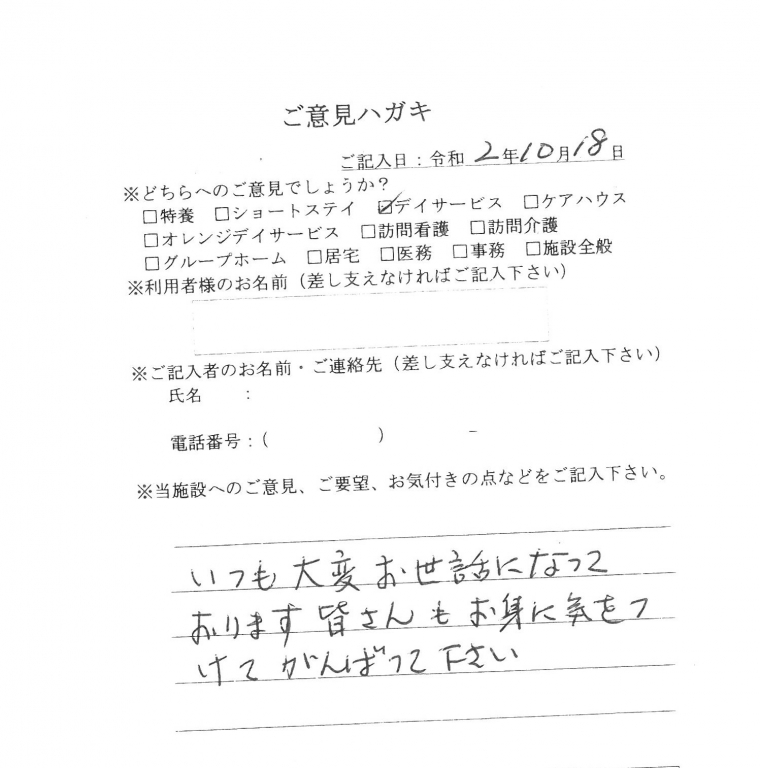 ご意見ハガキ
ご記入日：令和 2年10月18日
※どちらへのご意見でしょうか？
□特養 □ショートステイ ☑デイサービス □ケアハウス
□オレンジデイサービス □訪問看護 □訪問介護
□グループホーム □居宅 □医務 □事務 □施設全般
※利用者様のお名前（差し支えなければご記入下さい）
※ご記入者のお名前・ご連絡先（差し支えなければご記入下さい）
氏名　：
電話番号：(　　　　)　　　－
※当施設へのご意見、ご要望、お気付きの点などをご記入下さい。
いつも大変お世話になって
おります皆さんもお身に気をつ
けてがんばって下さい